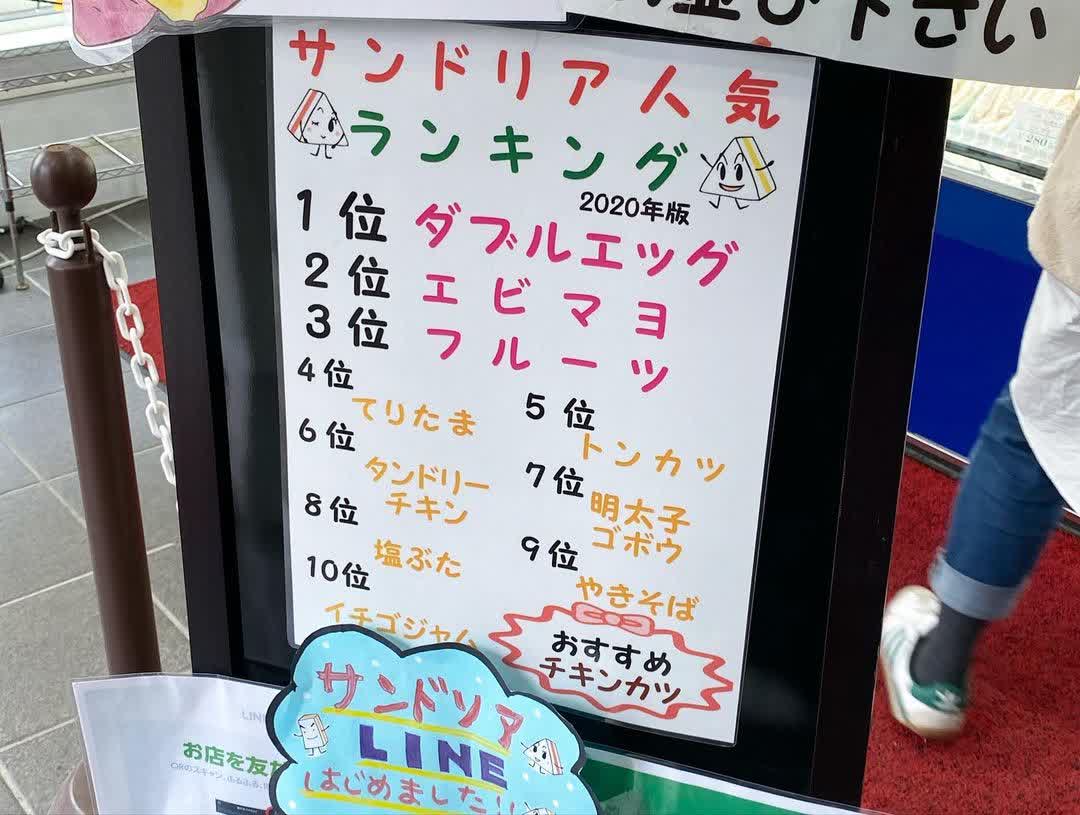 び下さい
サンドリア人気
ランキング
2020年版
1位 ダブルエッグ
2位 エビマヨ
3位 フルーツ
4位
てりたま
5位
トンカツ
6位
タンドリー
チキン
7位
明太子
ゴボウ
8位
塩ぶた
9位
やきそば
10位
イチゴジャム
おすすめ
チキンカツ
サンドリア
LINE
はじめました!!
LINE
お店を友だ
280